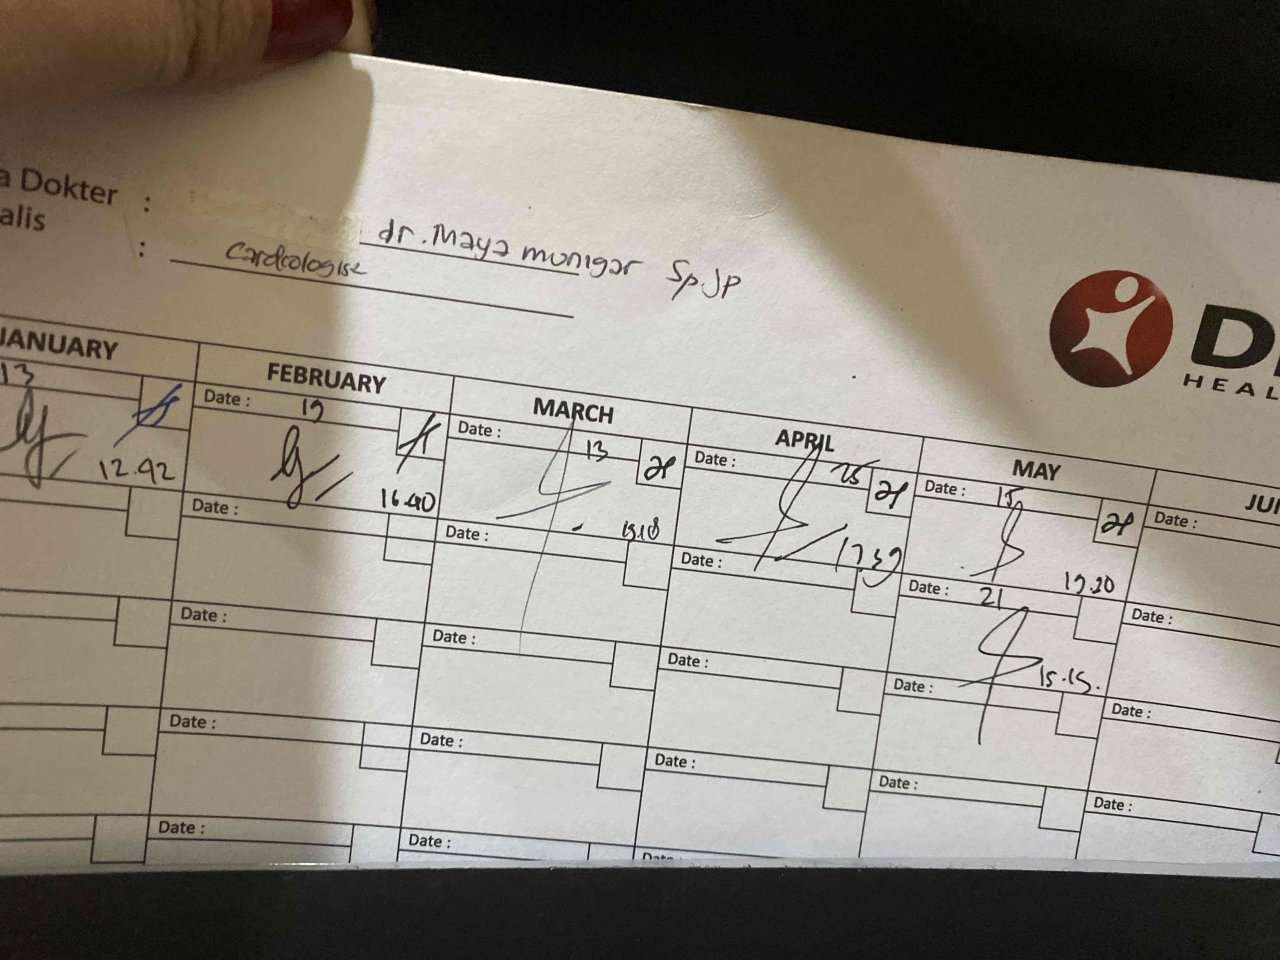 a Dokter :
dr. Maya munigar Sp.JP
alis :
Cardiologist
D
HEAL
JANUARY FEBRUARY MARCH APRIL MAY JU
13
12.42
Date : 19
16.40
Date : 13
Date : 25
17.39
Date : 15
19.20
Date :
Date :
Date :
Date :
Date : 21
15.15.
Date :
Date :
Date :
Date :
Date :
Date :
Date :
Date :
Date :
Date :
Date :
Date :
Date :